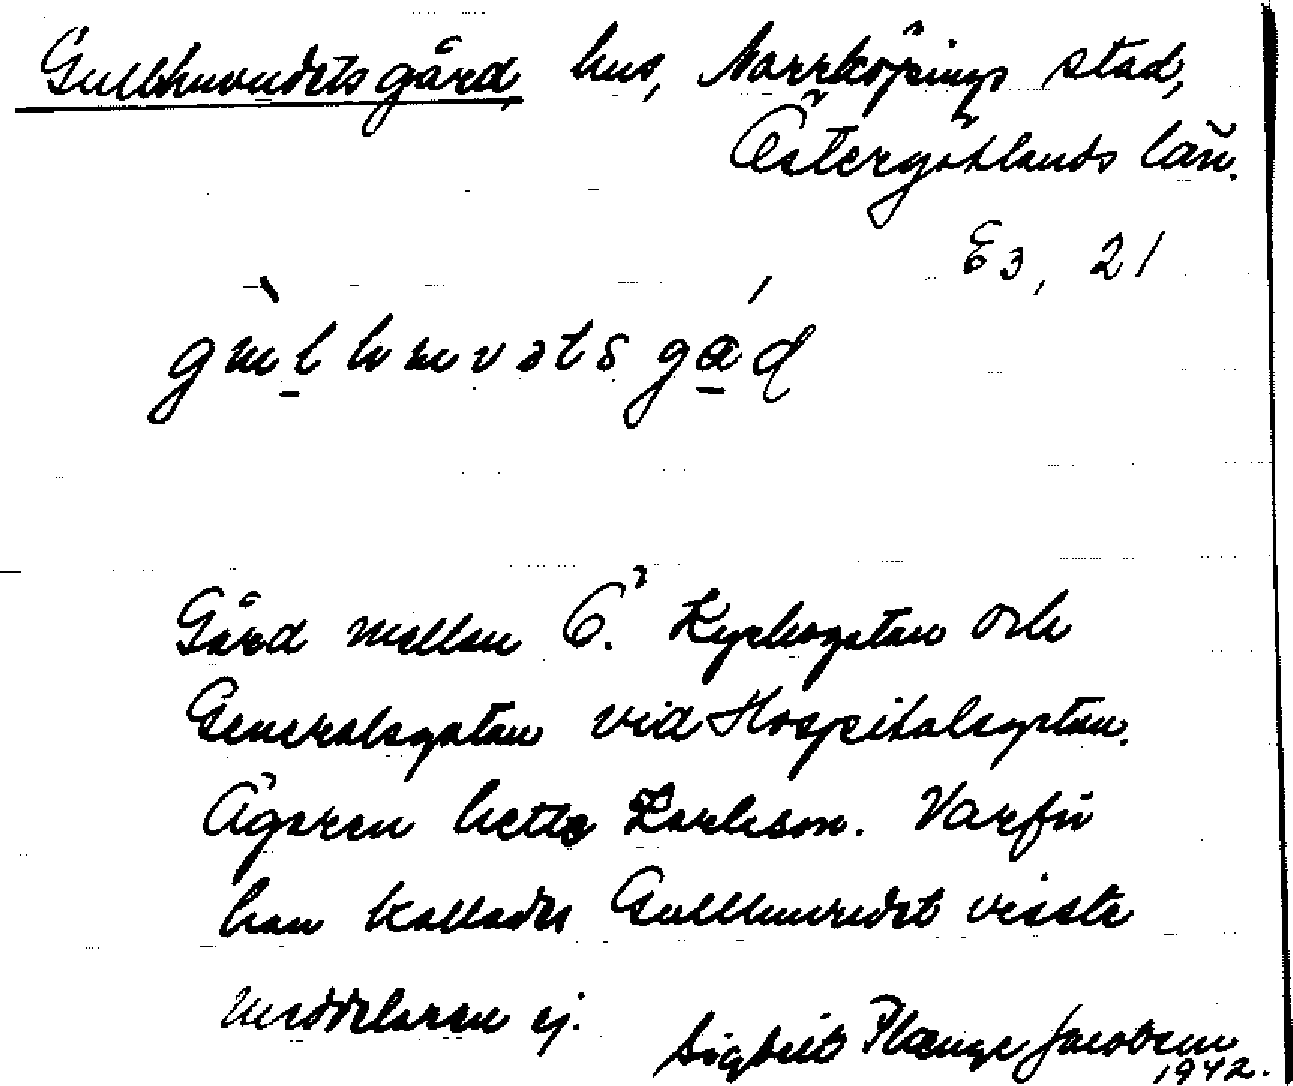 Gullhuvudetsgård, hus, Norrköpings stad,
Östergötlands län.
E3, 21
gùlhuvətsgád
Gård mellan Ö. Kyrkogatan och
Generalsgatan vid Hospitalsgatan.
Ägaren hette Karlsson. Varför
han kallades Gullhuvudet visste
meddelaren ej.
Sigbrit Plænge Jacobson
1942.